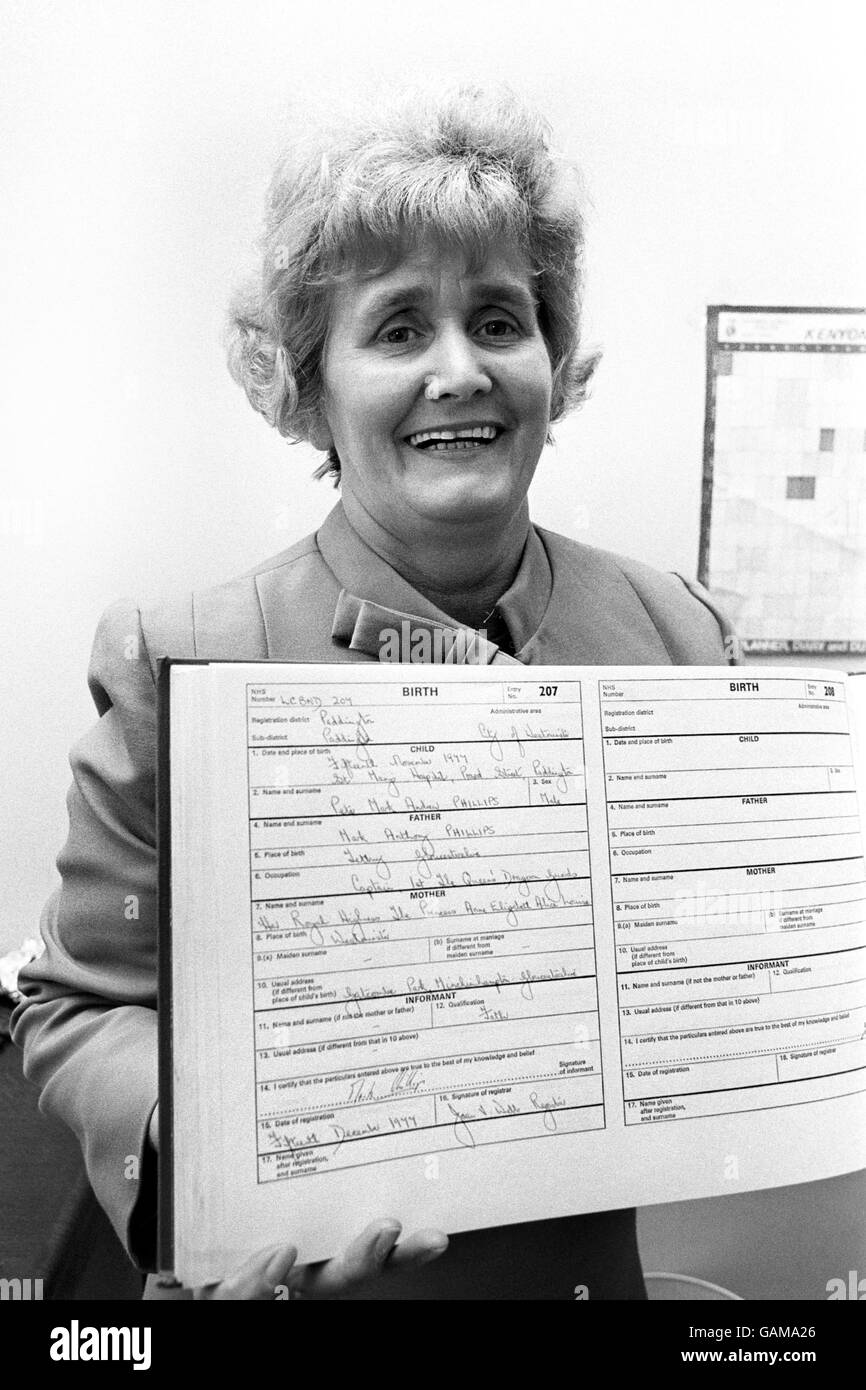 KENYON
PLANNER, DIARY and DU
NHS Number LCBND 207 BIRTH Entry No. 207
Registration district Paddington Administrative area
Sub-district Paddington City of Westminster
1. Date and place of birth CHILD
Fifteenth November 1977
St. Marys Hospital, Praed Street, Paddington
2. Name and surname 3. Sex
Peter Mark Andrew PHILLIPS Male
4. Name and surname FATHER
Mark Anthony PHILLIPS
5. Place of birth
Tetbury Gloucestershire
6. Occupation
Captain, 1st The Queens Dragoon Guards
7. Name and surname MOTHER
Her Royal Highness The Princess Anne Elizabeth Alice Louise
8. Place of birth Westminster
9.(a) Maiden surname – (b) Surname at marriage if different from maiden surname –
10. Usual address (if different from place of child's birth) Gatcombe Park Minchinhampton Gloucestershire
INFORMANT
11. Name and surname (if not the mother or father) 12. Qualification
– Father
13. Usual address (if different from that in 10 above)
–
14. I certify that the particulars entered above are true to the best of my knowledge and belief
Mark Phillips Signature of informant
15. Date of registration 16. Signature of registrar
Fifteenth December 1977 Registrar
17. Name given after registration, and surname
NHS Number BIRTH Entry No. 208
Registration district Administrative area
Sub-district
1. Date and place of birth CHILD
2. Name and surname 3. Sex
4. Name and surname FATHER
5. Place of birth
6. Occupation
7. Name and surname MOTHER
8. Place of birth
9.(a) Maiden surname (b) Surname at marriage if different from maiden surname
10. Usual address (if different from place of child's birth)
INFORMANT
11. Name and surname (if not the mother or father) 12. Qualification
13. Usual address (if different from that in 10 above)
14. I certify that the particulars entered above are true to the best of my knowledge and belief
15. Date of registration 16. Signature of registrar
17. Name given after registration, and surname
alamy
a
alamy
Image ID: GAMA26
www.alamy.com